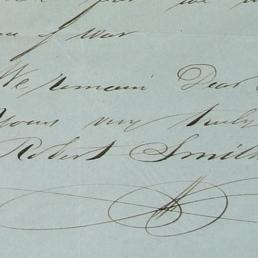 of War
We remain Dear
Yours very truly
Robert Smith